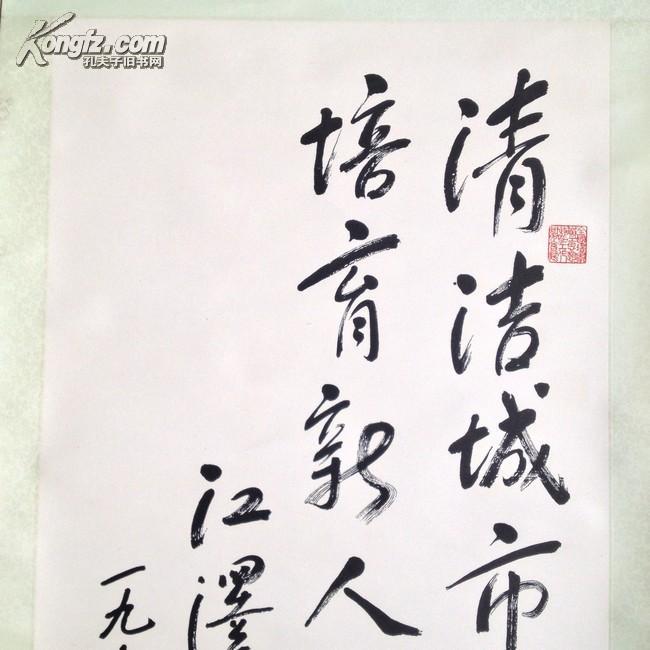 清洁城市
培育新人
江泽
一九
Kongfz.com
孔夫子旧书网